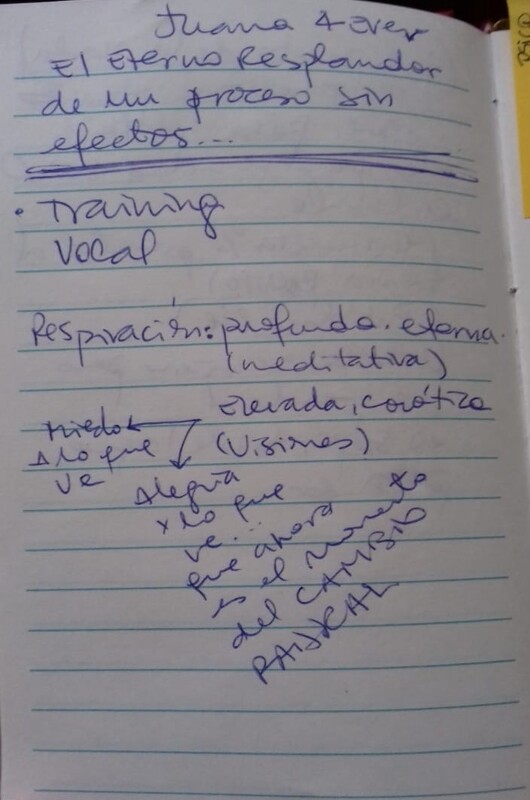 Juana 4 Ever
El Eterno Resplandor
de un proceso sin
efectos...
• Training
Vocal
Respiración: profunda. eterna.
(meditativa)
Elevada, caótica
(Visiones)
Miedo
A lo que
ve
Alegría
x lo que
ve...
que ahora
es el momento
del CAMBIO
RADICAL